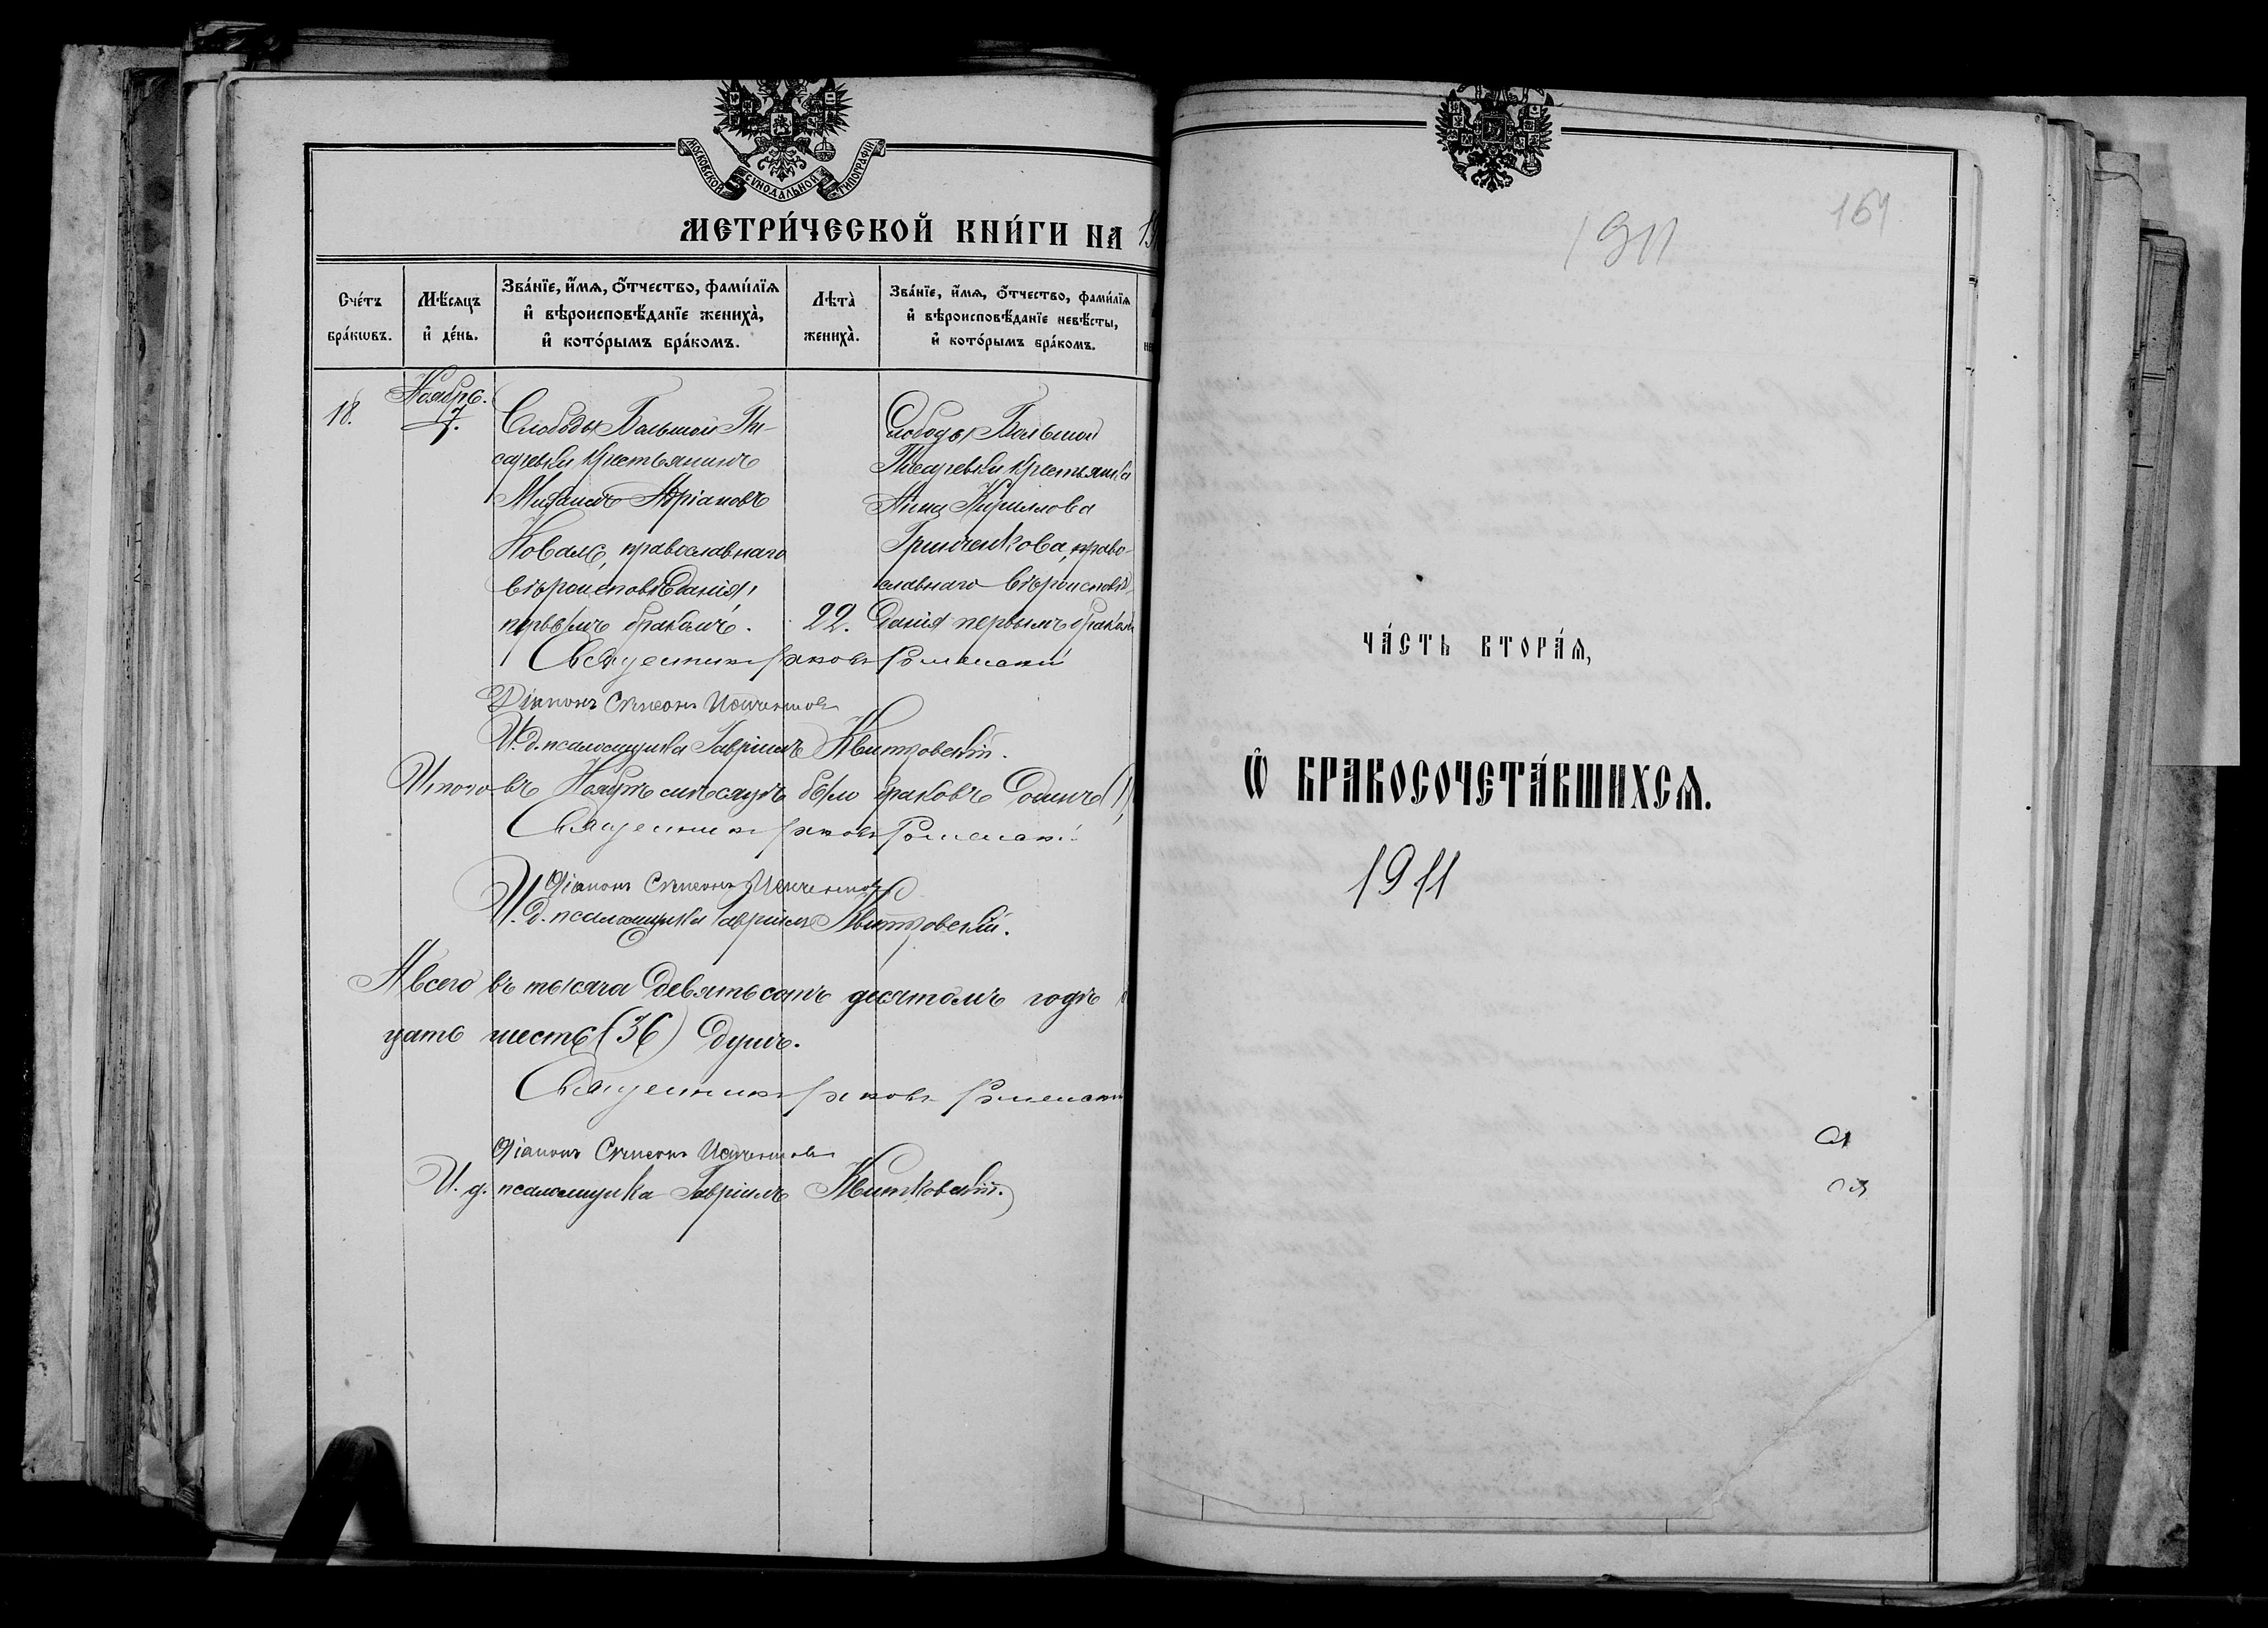 МОСКОВСКОЙ СѴНОДАЛЬНОЙ ТИПОГРАФІИ
МЕТРИ́ЧЕСКОЙ КНИ́ГИ НА
Сче́тъ бра́кѡвъ.
Мѣ́сяцъ и҆ де́нь.
Зва́нїе, и҆́мѧ, ѻ҆́тчество, фами́лїѧ и҆ вѣроисповѣ́данїе жениха̀, и҆ кото́рымъ бра́комъ.
Лѣта̀ жениха̀.
Зва́нїе, и҆́мѧ, ѻ҆́тчество, фами́лїѧ и҆ вѣроисповѣ́данїе невѣ́сты, и҆ кото́рымъ бра́комъ.
18.
Ноябрь.
7.
Слободы Большой Пи-
саревки крестьянинъ
Михаилъ Адріановъ
Коваль, православнаго
вѣроисповѣданія,
первымъ бракомъ.
22.
Слободы Большой
Писаревки крестьянка
Анна Кириллова
Гринченкова, право-
славнаго вѣроисповѣ-
данія первымъ бракомъ
Священникъ Іаковъ
Діаконъ Сѵмеонъ
И. д. псаломщика Гавріилъ Квитковскій.
Итого въ Ноябрѣ мѣсяцѣ было браковъ Одинъ (1)
Священникъ Іаковъ
Діаконъ Сѵмеонъ
И. д. псаломщика Гавріилъ Квитковскій.
А всего въ тысяча девятьсотъ десятомъ годѣ
цать шесть (36) душъ.
Священникъ Іаковъ
Діаконъ Сѵмеонъ
И. д. псаломщика Гавріилъ Квитковскій.
1911
164
ЧА́СТЬ ВТОРА́Ѧ,
Ѽ БРАКОСОЧЕТА́ВШИХСѦ.
1911